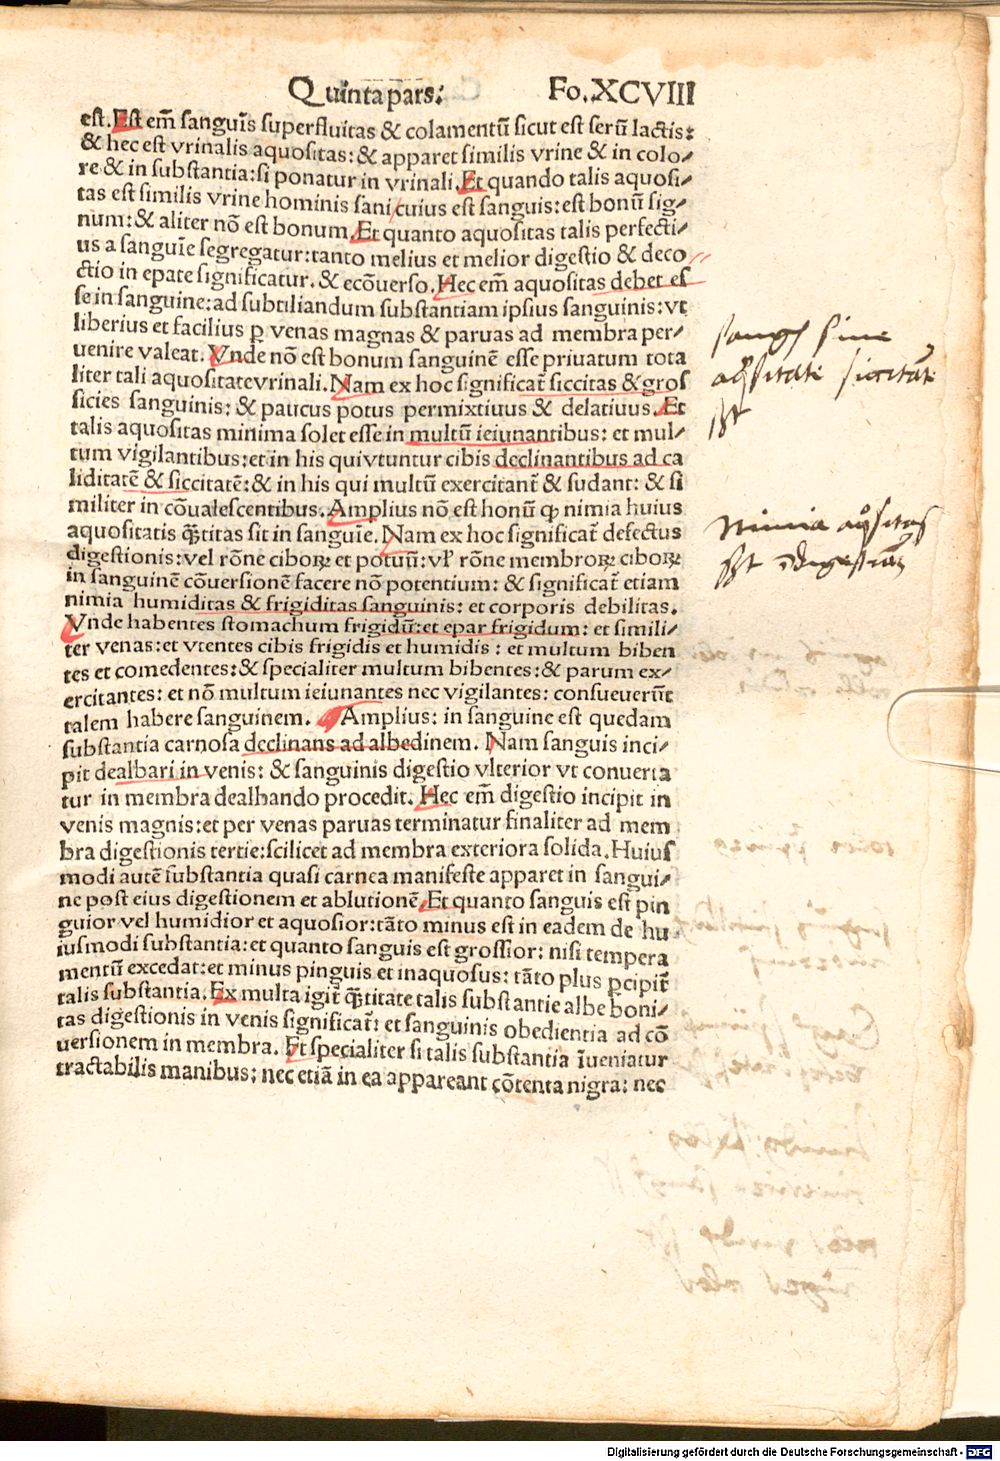 Quinta pars. Fo. XCVIII
est. Est em̄ sanguīs superfluitas & colamentū sicut est serū lactis:
& hec est vrinalis aquositas: & apparet similis vrine & in colo/
re & in substantia: si ponatur in vrinali. Et quando talis aquosi/
tas est similis vrine hominis sani cuius est sanguis: est bonū sig/
num: & aliter nō est bonum. Et quanto aquositas talis perfecti/
us a sanguīe segregatur: tanto melius et melior digestio & deco
ctio in epate significatur. & ecōuerso. Hec em̄ aquositas debet es
se in sanguine: ad subtiliandum substantiam ipsius sanguinis: vt
liberius et facilius ꝑ venas magnas & paruas ad membra per/
uenire valeat. Vnde nō est bonum sanguinē esse priuatum tota
liter tali aquositate vrinali. Nam ex hoc significat̄ siccitas & gros
sicies sanguinis: & paucus potus permixtiuus & delatiuus. Et
talis aquositas minima solet esse in multū ieiunantibus: et mul/
tum vigilantibus: et in his qui vtuntur cibis declinantibus ad ca
liditatē & siccitatē: & in his qui multū exercitant̄ & sudant: & si
militer in cōualescentibus. Amplius nō est bonū ꝙ nimia huius
aquositatis q̄ntitas sit in sanguīe. Nam ex hoc significat̄ defectus
digestionis: vel rōne ciboꝝ et potuū: vl' rōne membroꝝ ciboꝝ
in sanguinē cōuersionē facere nō potentium: & significat̄ etiam
nimia humiditas & frigiditas sanguinis: et corporis debilitas.
Vnde habentes stomachum frigidū: et epar frigidum: et simili/
ter venas: et vtentes cibis frigidis et humidis: et multum biben
tes et comedentes: & specialiter multum bibentes: & parum ex/
ercitantes: et nō multum ieiunantes nec vigilantes: consueuerūt
talem habere sanguinem. Amplius: in sanguine est quedam
substantia carnosa declinans ad albedinem. Nam sanguis inci/
pit dealbari in venis: & sanguinis digestio vlterior vt conuerta
tur in membra dealbando procedit. Hec em̄ digestio incipit in
venis magnis: et per venas paruas terminatur finaliter ad mem
bra digestionis tertie: scilicet ad membra exteriora solida. Huius
modi autē substantia quasi carnea manifeste apparet in sangui/
ne post eius digestionem et ablutionē. Et quanto sanguis est pin
guior vel humidior et aquosior: tāto minus est in eadem de hu
iusmodi substantia: et quanto sanguis est grossior: nisi tempera
mentū excedat: et minus pinguis et inaquosus: tāto plus ꝑcipit̄
talis substantia. Ex multa igit̄ q̄ntitate talis substantie albe boni/
tas digestionis in venis significat̄: et sanguinis obedientia ad cō
uersionem in membra. Et specialiter si talis substantia īueniatur
tractabilis manibus: nec etiā in ea appareant cōtenta nigra: nec
sine
siccitatē
Nimia aq̄sitas
Digitalisierung gefördert durch die Deutsche Forschungsgemeinschaft - DFG